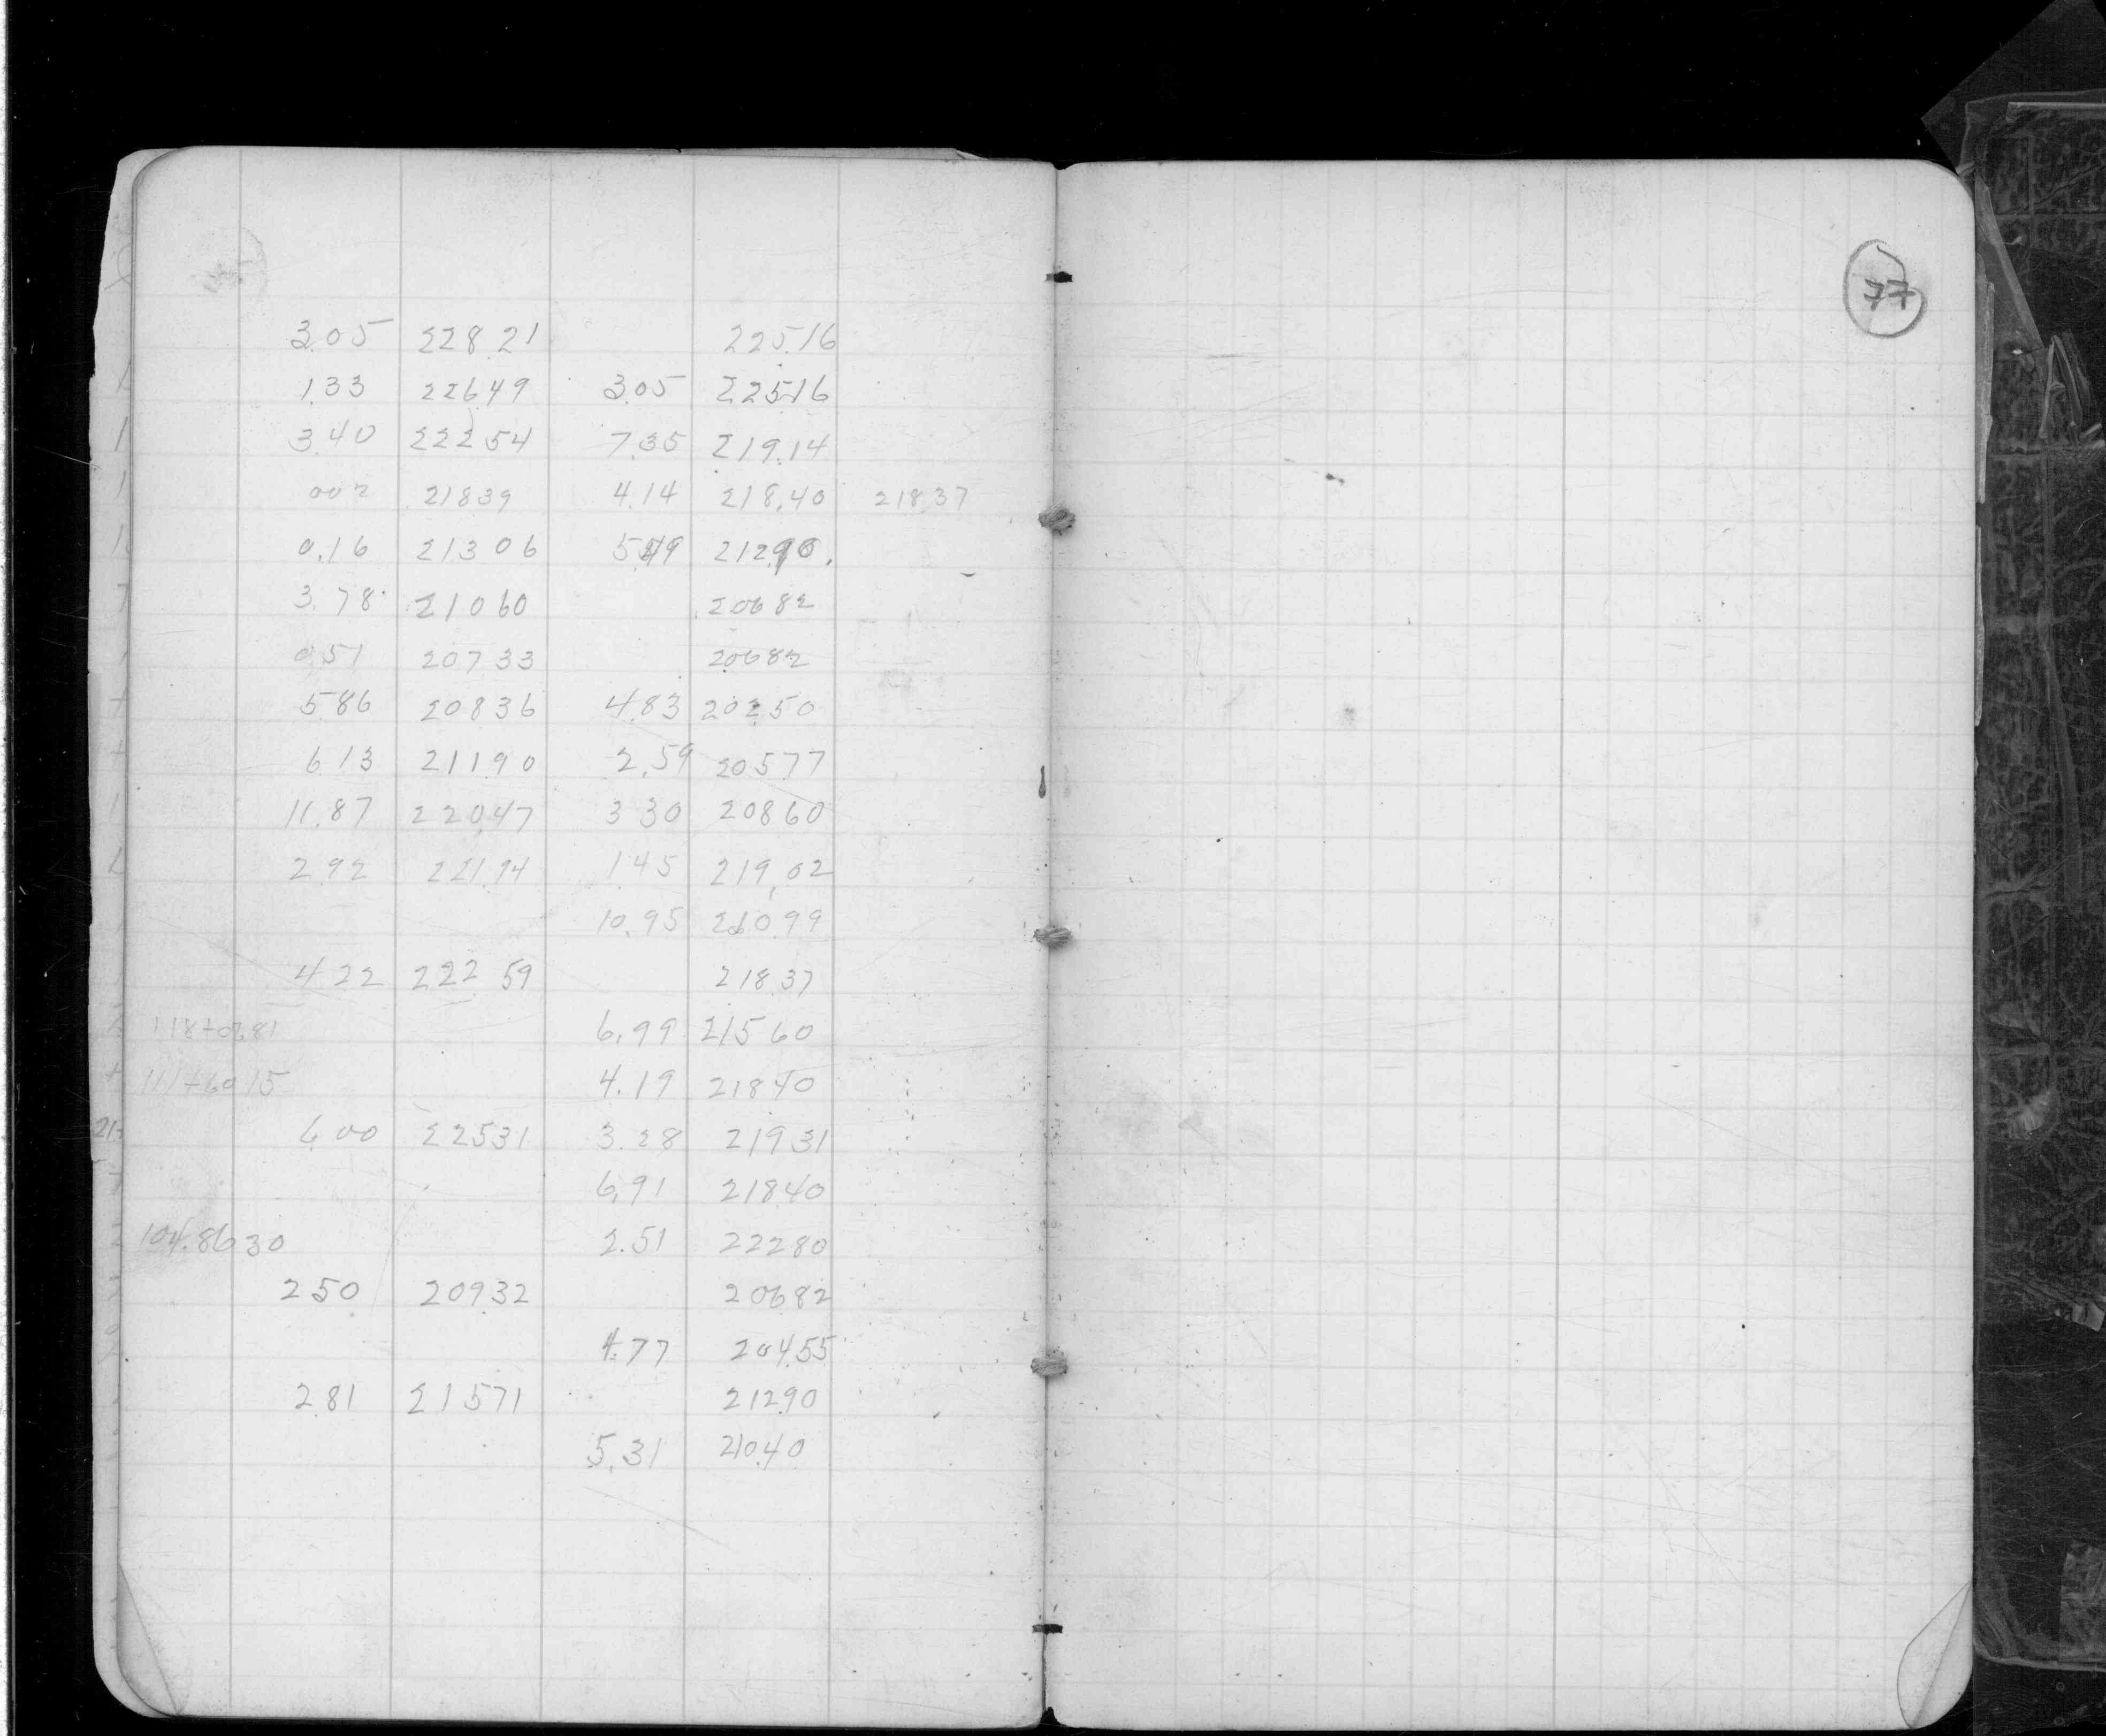 77
3.05 228.21 225.16
1.33 226.49 3.05 225.16
3.40 222.54 7.35 219.14
002 218.39 4.14 218.40 218.37
0.16 213.06 5.49 212.90.
3.78 210.60 206.82
0.51 207.33 206.82
5.86 208.36 4.83 202.50
6.13 211.90 2.59 205.77
11.87 220.47 3.30 208.60
2.92 221.94 1.45 219.02
10.95 210.99
4.22 222.59 218.37
118+0681 6.99 215.60
111+6015 4.19 218.40
6.00 225.31 3.28 219.31
6.91 218.40
104.8630 2.51 222.80
2.50 209.32 206.82
4.77 204.55
2.81 215.71 212.90
5.31 210.40